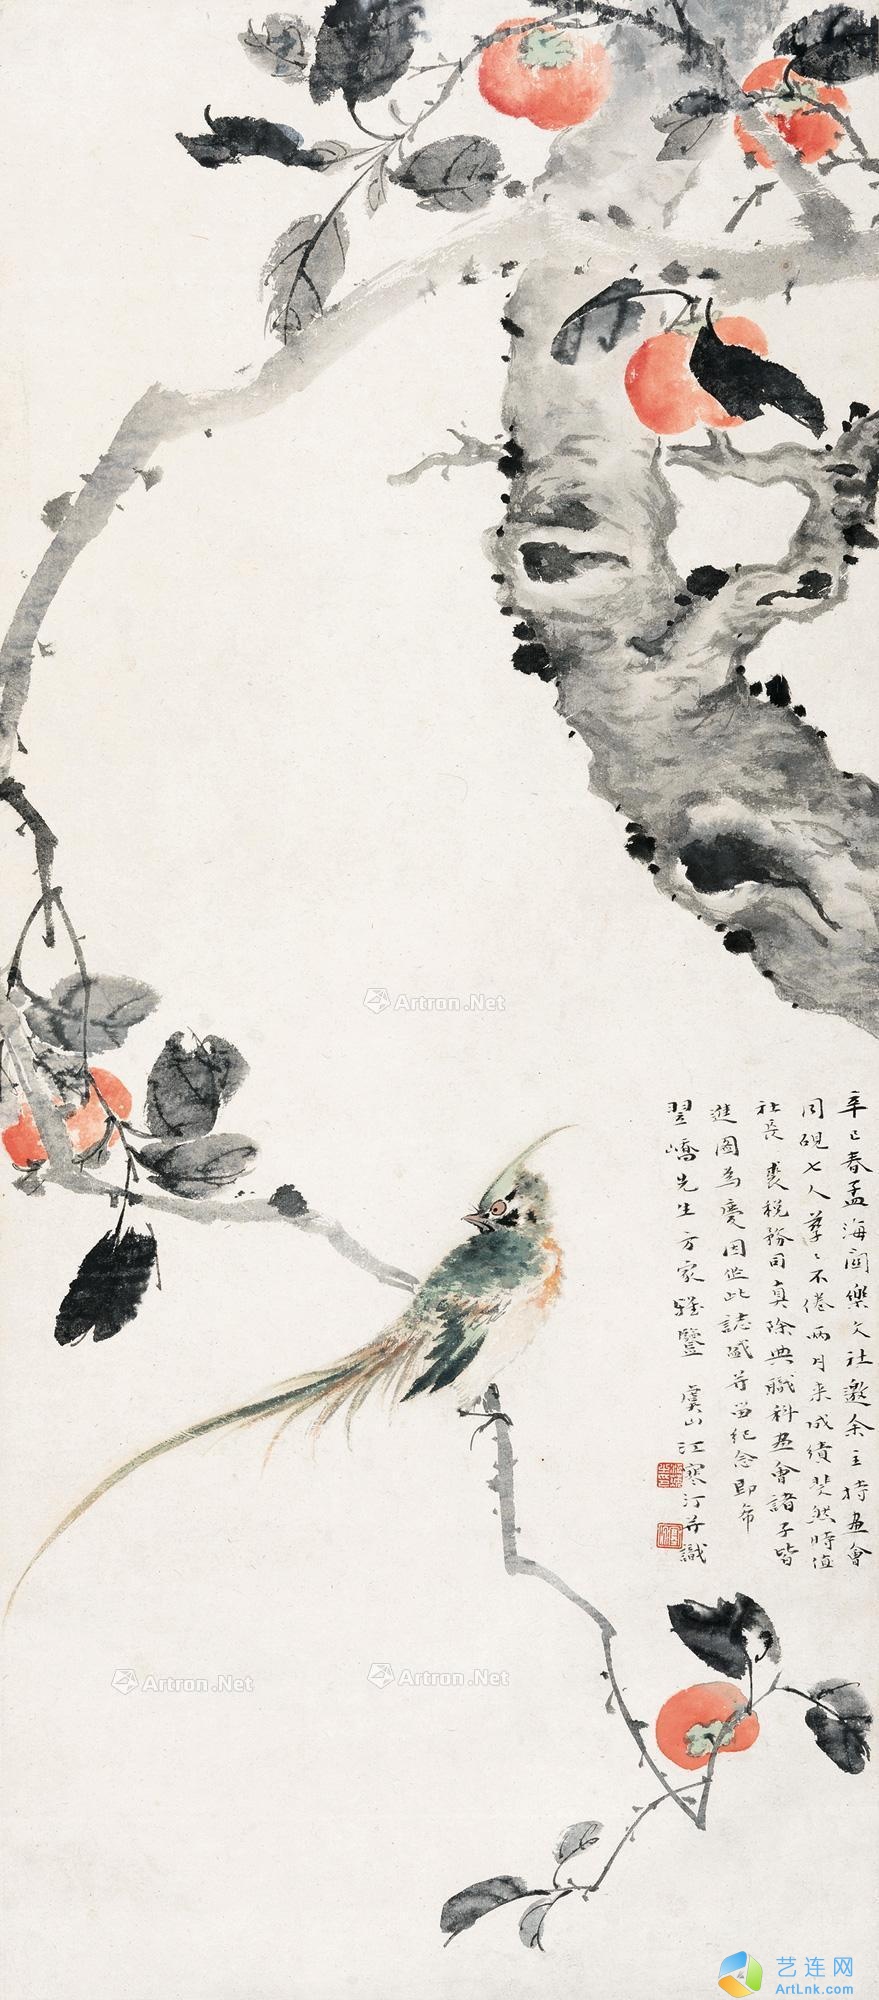 辛巳春孟海関樂文社邀余主持画會
同硯七人孳〻不倦兩月来成績斐然時值
社長裘税務司真除典職科画會諸子皆
進圖為慶因作此誌盛并留紀念即希
翌嶠先生方家雅鑒 虞山江寒汀并識
Artron.Net
Artron.Net
Artron.Net
艺连网
ArtLnk.com